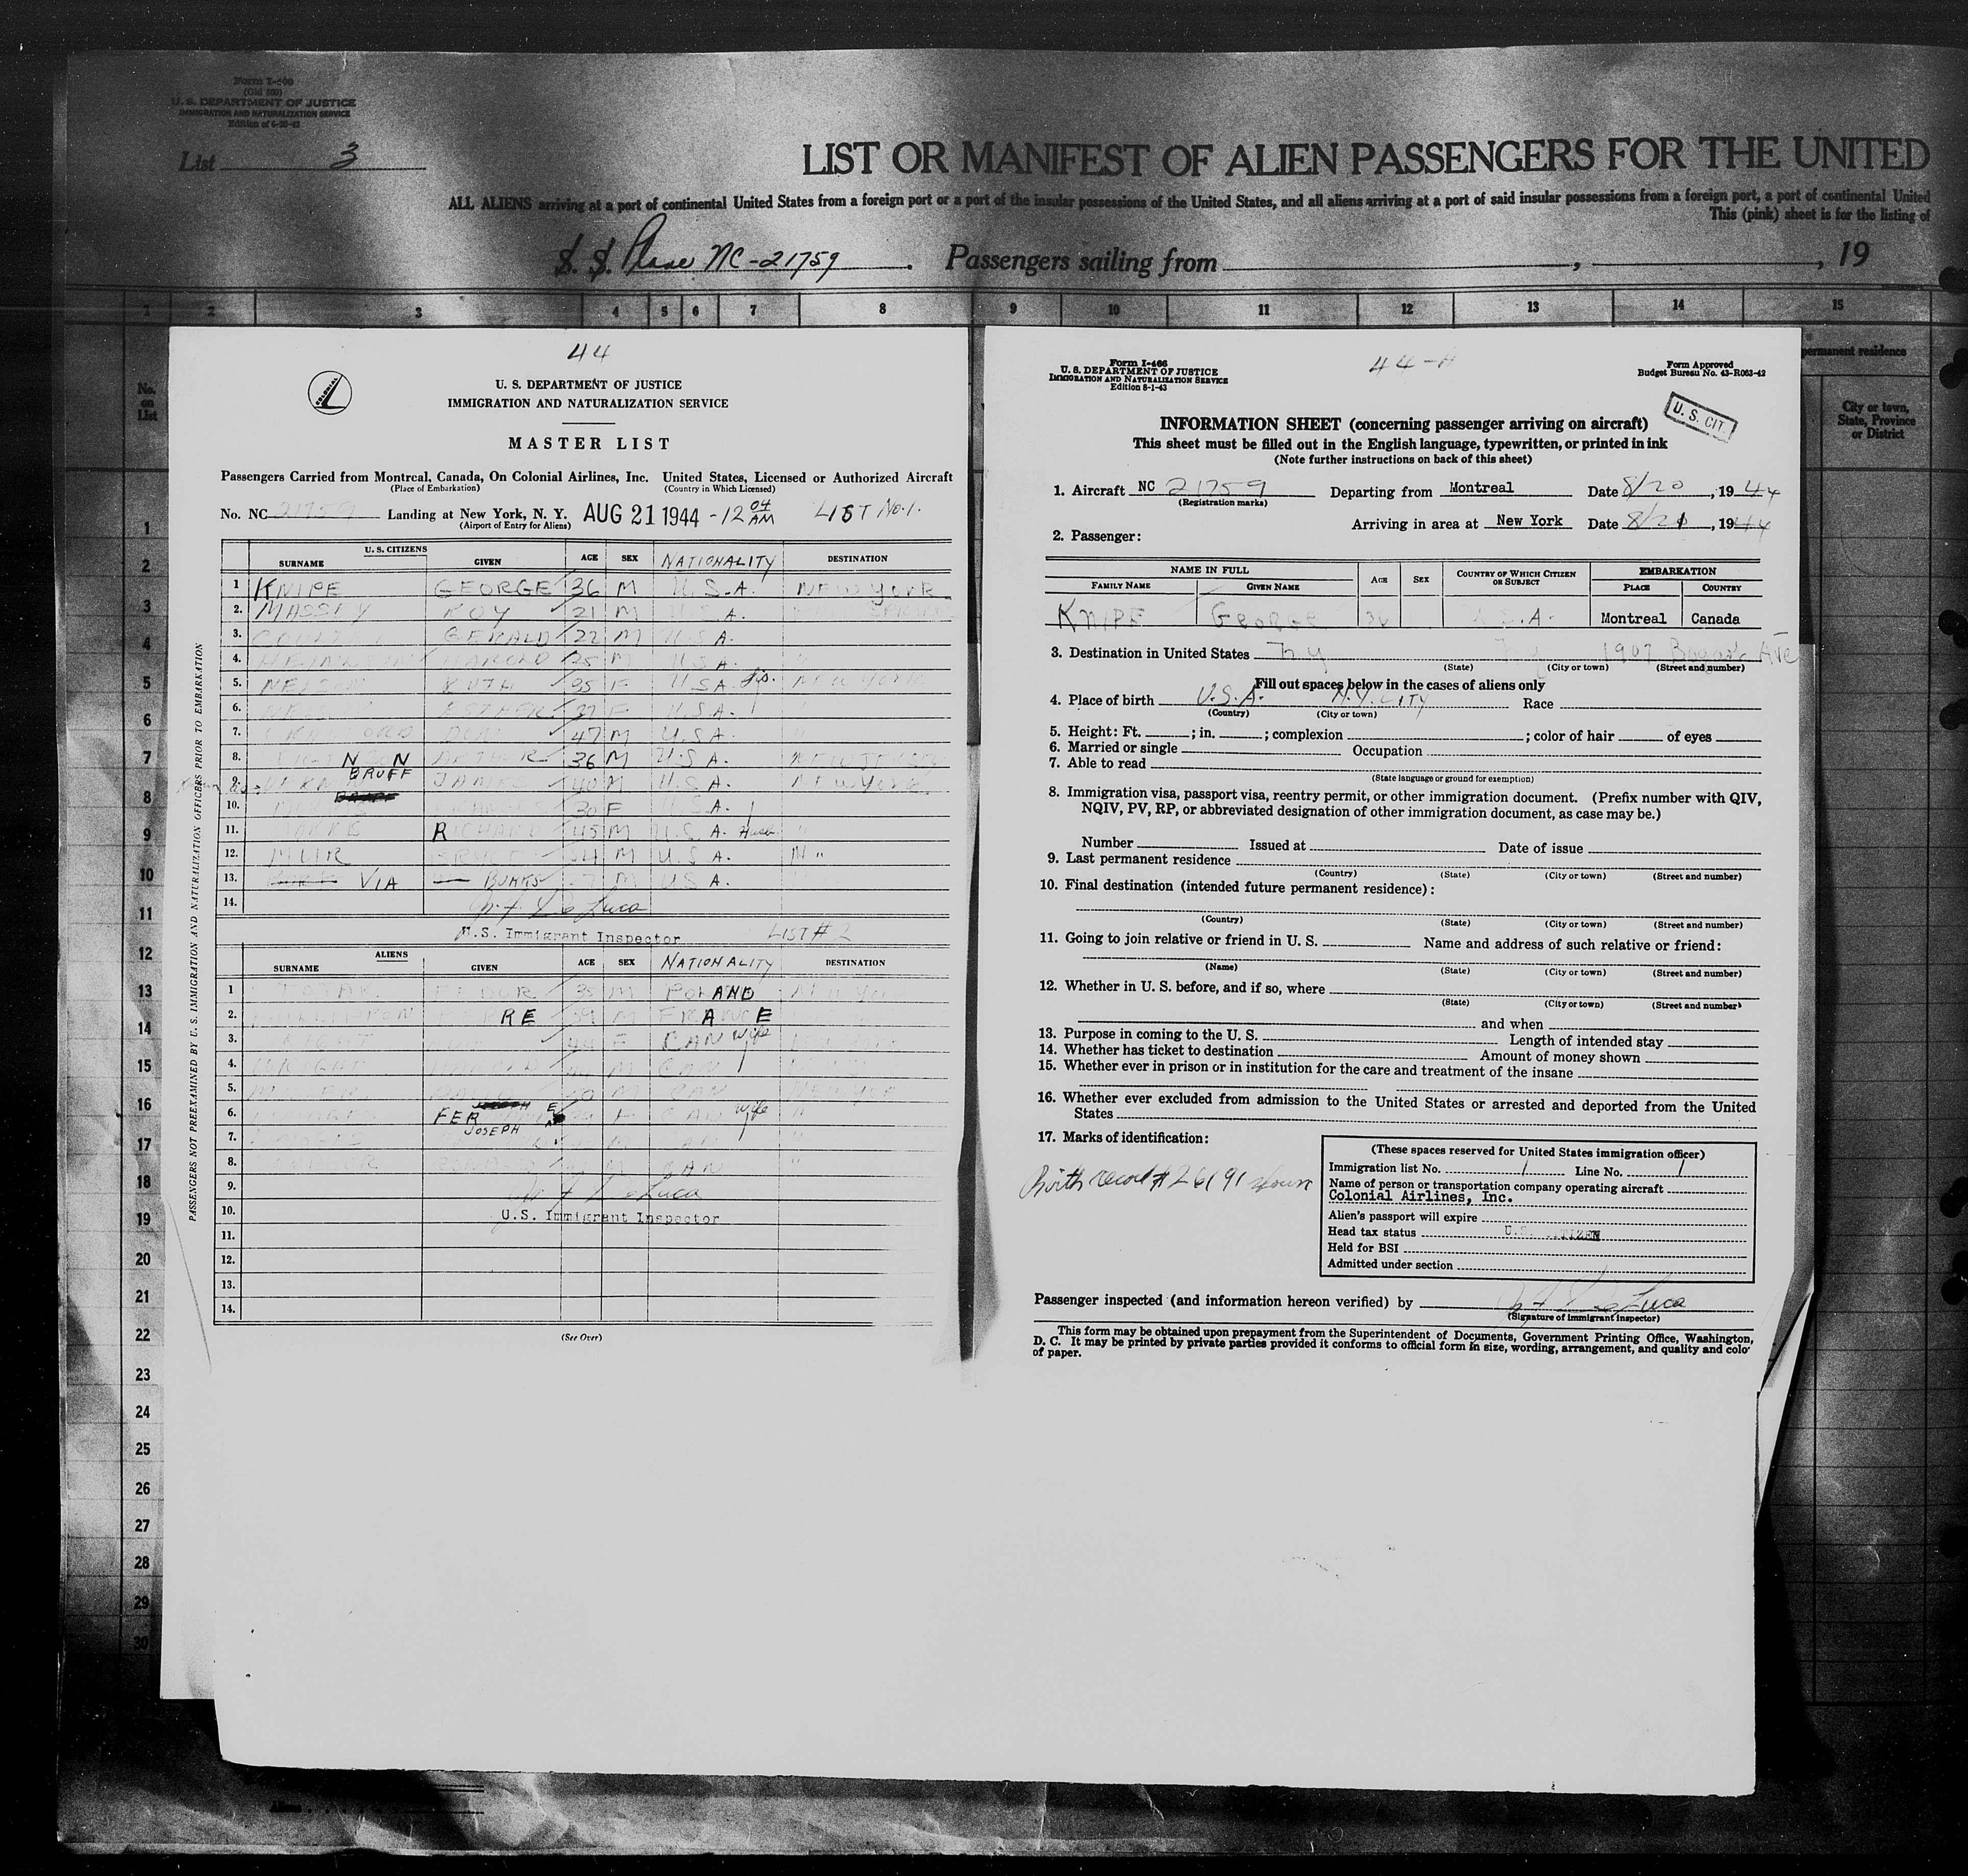 Form I-466
(Old 500)
U. S. DEPARTMENT OF JUSTICE
IMMIGRATION AND NATURALIZATION SERVICE
List 3
LIST OR MANIFEST OF ALIEN PASSENGERS FOR THE UNITED
ALL ALIENS arriving at a port of continental United States from a foreign port or a port of the insular possessions of the United States, and all aliens arriving at a port of said insular possessions from a foreign port, a port of continental United
This (pink) sheet is for the listing of
S. S. Plane NC-21759. Passengers sailing from , , 19
1 2 3 4 5 6 7 8 9 10 11 12 13 14 15
No. on List
permanent residence
City or town, State, Province or District
1
2
3
4
5
6
7
8
9
10
11
12
13
14
15
16
17
18
19
20
21
22
23
24
25
26
27
28
29
30
44
COLONIAL
U. S. DEPARTMENT OF JUSTICE
IMMIGRATION AND NATURALIZATION SERVICE
MASTER LIST
Passengers Carried from Montreal, Canada, On Colonial Airlines, Inc. United States, Licensed or Authorized Aircraft
(Place of Embarkation) (Country in Which Licensed)
No. NC 21759 Landing at New York, N. Y. AUG 21 1944 - 12 04 AM LIST No. 1.
(Airport of Entry for Aliens)
PASSENGERS NOT PREEXAMINED BY U. S. IMMIGRATION AND NATURALIZATION OFFICERS PRIOR TO EMBARKATION
U. S. CITIZENS
SURNAME GIVEN AGE SEX NATIONALITY DESTINATION
1 KNIPE GEORGE 36 M U.S.A. NEW YORK
2. MASSEY ROY 21 M A.
3. GERALD 22 M U.S.A.
4. HAROLD 25 M U.S.A. "
5. NELSON RUTH 35 F U.S.A. NEW YORK
6. ESTHER F U.S.A.
7. 47 M U.S.A. "
8. N N 36 M U.S.A. NEW JERSEY
BRUFF
9. 40 M U.S.A. NEW YORK
10. 30 F U.S.A.
11. RICHARD 45 M U.S.A. "
12. MUIR M U.S.A. N "
13. VIA BURKS M U.S.A.
14. De Luca
U.S. Immigrant Inspector LIST # 2
ALIENS
SURNAME GIVEN AGE SEX NATIONALITY DESTINATION
1 35 M POLAND NEW YORK
2. RE M FRANCE
3. F CAN wife
4. M CAN
5. M CAN
6. FER E F CAN wife "
JOSEPH
7. "
8. M CAN "
9. De Luca
10. U.S. Immigrant Inspector
11.
12.
13.
14.
(See Over)
Form I-466
U. S. DEPARTMENT OF JUSTICE
IMMIGRATION AND NATURALIZATION SERVICE
Edition 8-1-43
44-A
Form Approved
Budget Bureau No. 43-R063-42
U. S. CIT.
INFORMATION SHEET (concerning passenger arriving on aircraft)
This sheet must be filled out in the English language, typewritten, or printed in ink
(Note further instructions on back of this sheet)
1. Aircraft NC 21759 Departing from Montreal Date 8/20, 1944
(Registration marks)
Arriving in area at New York Date 8/21, 1944
2. Passenger:
NAME IN FULL AGE SEX COUNTRY OF WHICH CITIZEN OR SUBJECT EMBARKATION
FAMILY NAME GIVEN NAME PLACE COUNTRY
KNIPE GEORGE 36 U.S.A. Montreal Canada
3. Destination in United States N Y 1907 AVE
(State) (City or town) (Street and number)
Fill out spaces below in the cases of aliens only
4. Place of birth U.S.A. N.Y. CITY Race
(Country) (City or town)
5. Height: Ft. ; in. ; complexion ; color of hair of eyes
6. Married or single Occupation
7. Able to read
(State language or ground for exemption)
8. Immigration visa, passport visa, reentry permit, or other immigration document. (Prefix number with QIV,
NQIV, PV, RP, or abbreviated designation of other immigration document, as case may be.)
Number Issued at Date of issue
9. Last permanent residence
(Country) (State) (City or town) (Street and number)
10. Final destination (intended future permanent residence):
(Country) (State) (City or town) (Street and number)
11. Going to join relative or friend in U. S. Name and address of such relative or friend:
(Name) (State) (City or town) (Street and number)
12. Whether in U. S. before, and if so, where
(State) (City or town) (Street and number)
and when
13. Purpose in coming to the U. S. Length of intended stay
14. Whether has ticket to destination Amount of money shown
15. Whether ever in prison or in institution for the care and treatment of the insane
16. Whether ever excluded from admission to the United States or arrested and deported from the United
States
17. Marks of identification:
Birth record # 26191 shown
(These spaces reserved for United States immigration officer)
Immigration list No. 1 Line No. 1
Name of person or transportation company operating aircraft
Colonial Airlines, Inc.
Alien's passport will expire
Head tax status U.S. CITIZEN
Held for BSI
Admitted under section
Passenger inspected (and information hereon verified) by De Luca
(Signature of Immigrant Inspector)
This form may be obtained upon prepayment from the Superintendent of Documents, Government Printing Office, Washington,
D. C. It may be printed by private parties provided it conforms to official form in size, wording, arrangement, and quality and colo
of paper.